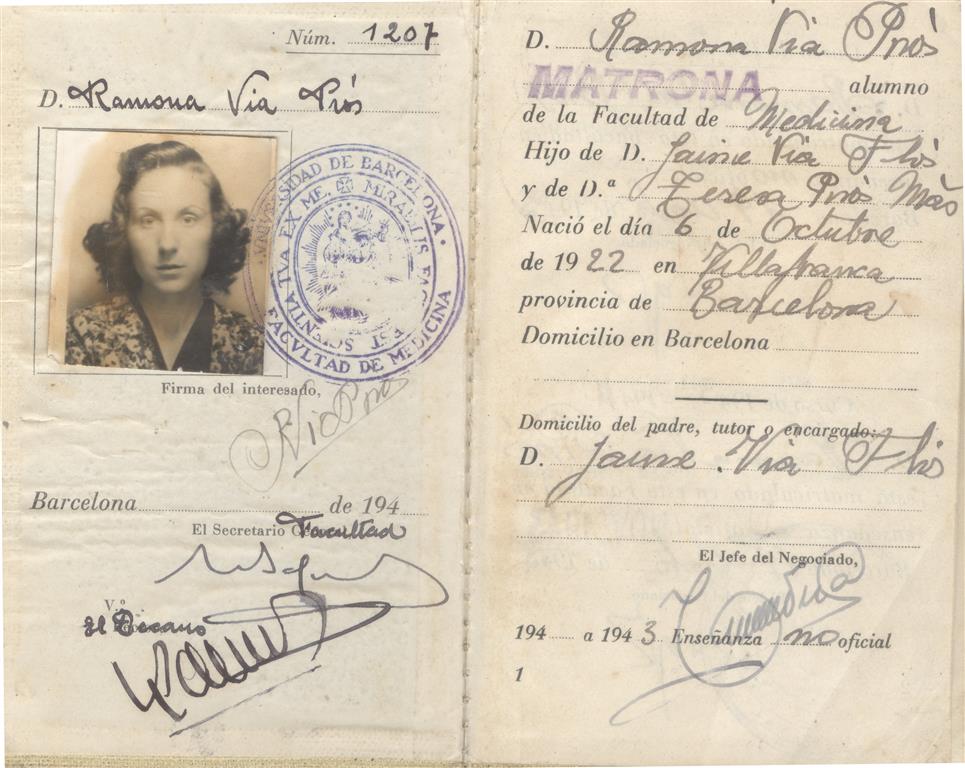 Núm. 1207
D. Ramona Via Prós
UNIVERSIDAD DE BARCELONA
FACVLTAD DE MEDICINA
Firma del interesado,
R Via Pros
Barcelona de 194
El Secretario Facultad
V.º
El Decano
D. Ramona Via Prós
MATRONA alumno
de la Facultad de Medicina
Hijo de D. Jaime Via Flós
y de D.ª Teresa Prós Más
Nació el día 6 de Octubre
de 1922 en Villafranca
provincia de Barcelona
Domicilio en Barcelona
Domicilio del padre, tutor o encargado:
D. Jaime Via Flós
El Jefe del Negociado,
194 a 1943 Enseñanza no oficial
1